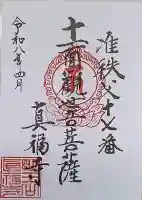 準秩父十七番
十一面観世音菩薩
真福寺
令和八年四月